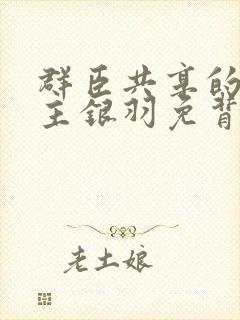 群臣共宴的
王银羽免背
老土娘